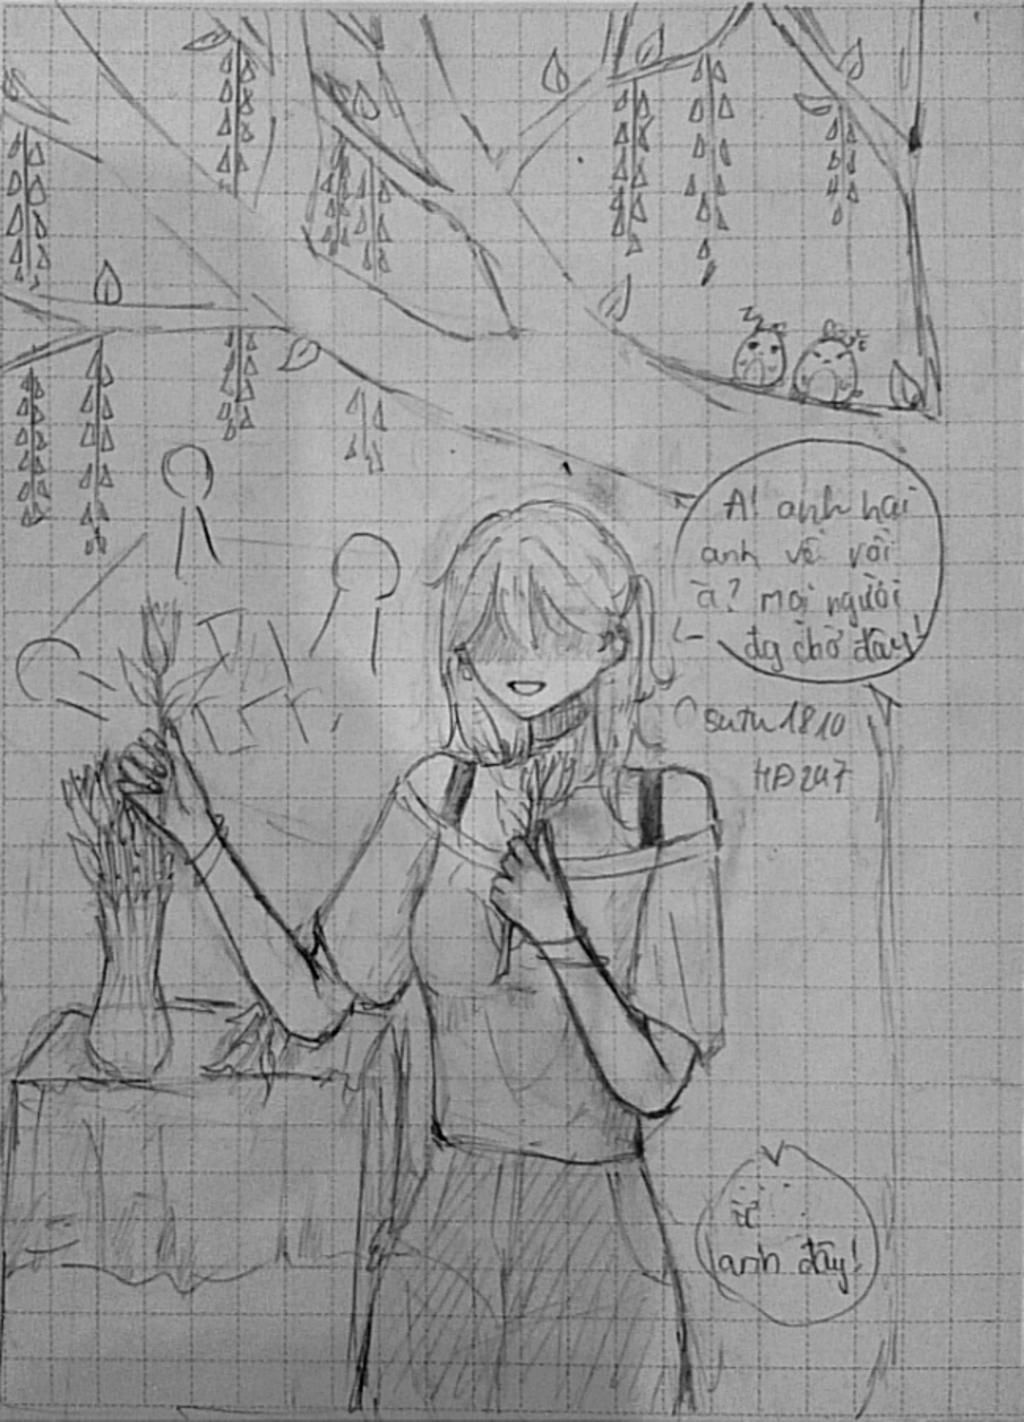 A! anh hai
anh về rồi
à? mọi người
đg chờ đây!
sutu1810
HĐ247
ừ
anh đây!